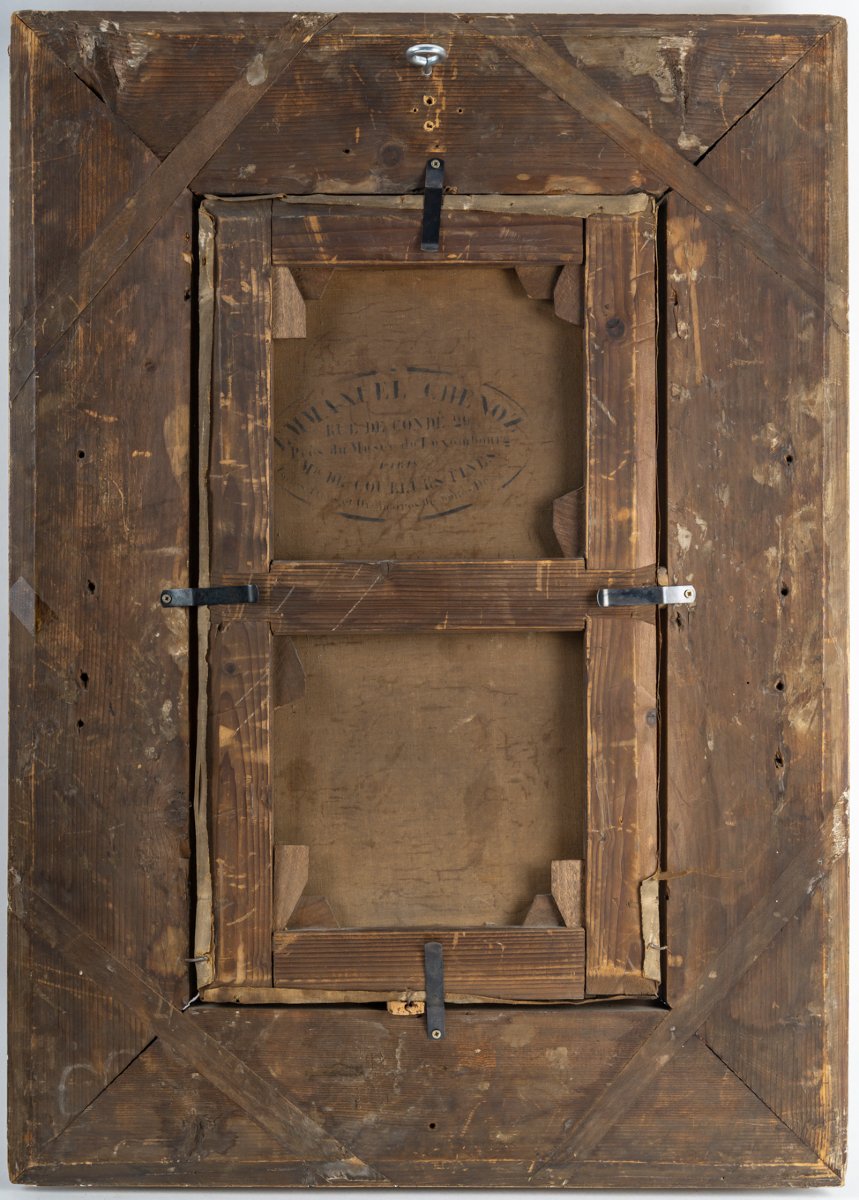 EMMANUEL CHENOZ
RUE DE CONDÉ 29
Près du Musée du Luxembourg
PARIS
MD. DE COULEURS FINES